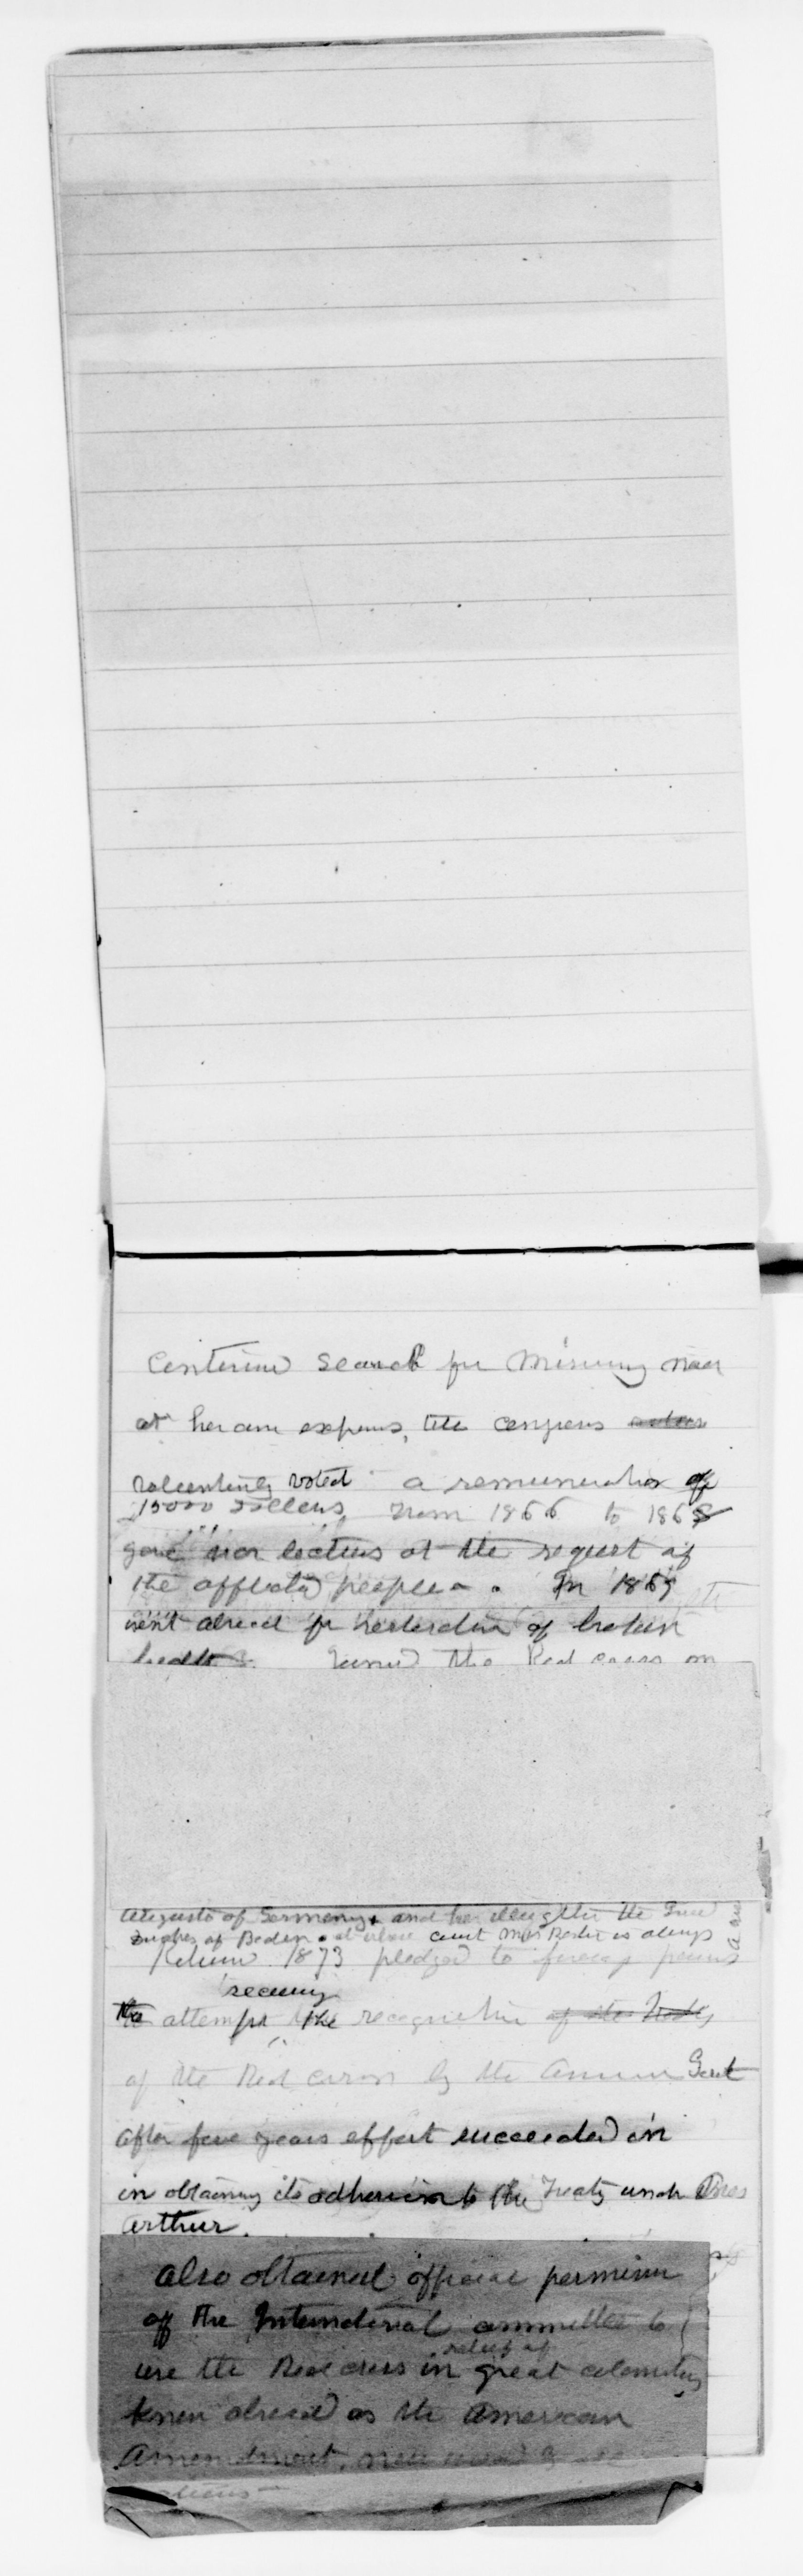 Continued search for missing men
at her own expense, till congress
voluntarily voted a remuneration of
15000 dollars. From 1866 to 1868
gave war lectures at the request of
the people. In 1869
went abroad for restoration of broken
health. Joined the Red cross on
Augusta of Germany and her daughter the Grand
Duchess of Baden. at whose court Miss Barton is always
Return 1873 pledged to
securing
the attempt the recognition of the Treaty
of the Red cross by the Govt
After five years effort succeeded in
in obtaining its adhesion to the Treaty under Pres
Arthur.
Also obtained official permission
of the International committee to
relief of
use the Red cross in great calamities
known abroad as the American
Amendment. now by all
nations